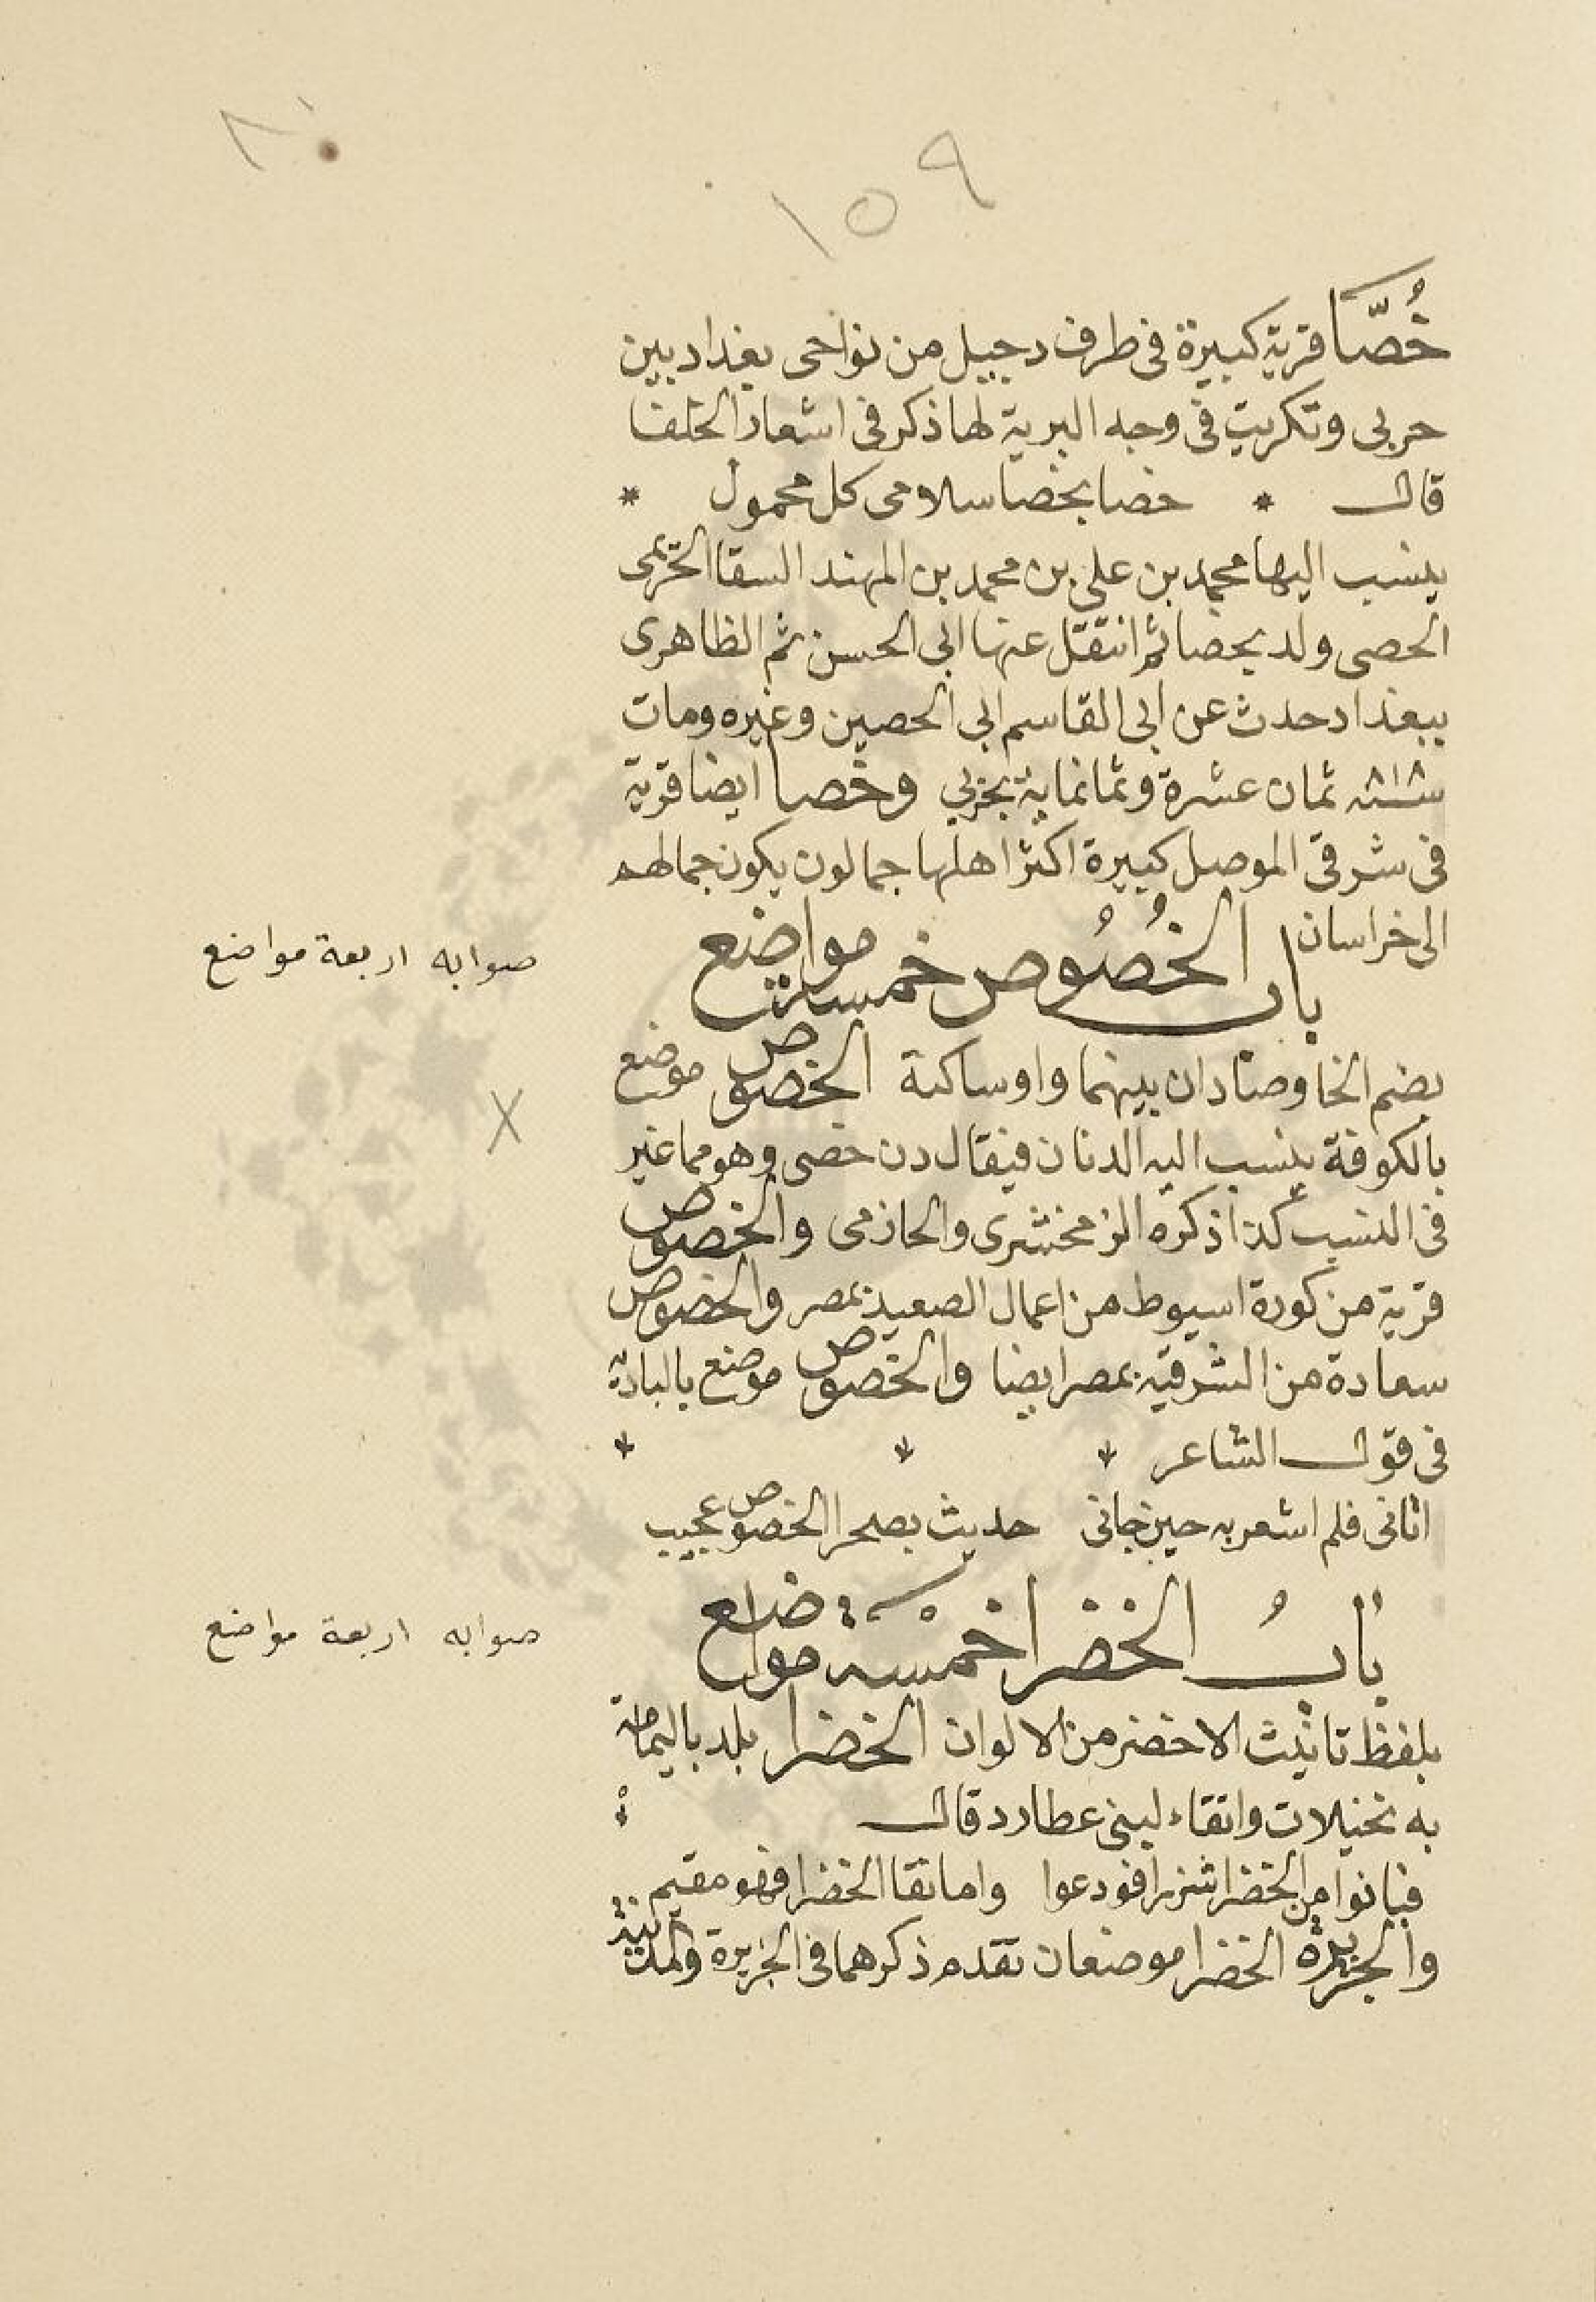 ١٥٩
خُصَّا قرية كبيرة فى طرف دجيل من نواحى بغداد بين
حربى وتكريت فى وجه البرية لها ذكر فى اشعار الخلفا
قال * خصا بخصا سلامى كل مخمول *
ينسب اليها محمد بن على بن محمد بن المهند السقا الحريمى
الحصى ولد بخصا ثم انتقل عنها الى الحسن ثم الظاهرى
ببغداد حدث عن ابى القاسم ابى الحصين وغيره ومات
ثمان عشرة وثمانماية بحربى وخصا ايضا قرية
فى شرقى الموصل كبيرة اكثر اهلها جمالون يكون جمالهم
الى خراسان
باب الخُصُوص خمسة مواضع
صوابه اربعة مواضع
بضم الخا وصادان بينهما واو ساكنة الخصوص موضع
بالكوفة ينسب اليه الدنان فيقال دن خصى وهو مما غير
فى النسب كذا ذكره الزمخشرى والحازمى والخصوص
قرية من كورة اسيوط من اعمال الصعيد بمصر والخصوص
سعادة من الشرقية بمصر ايضا والخصوص موضع بالبادية
فى قول الشاعر
اتانى فلم اشعر به حين جانى حديث بصحرا الخصوص عجيب
بابُ الخضرا خمسة مواضع
صوابه اربعة مواضع
بلفظ تانيث الاخضر من الالوان الخضرا بلد باليمامة
به نخيلات وانقاء لبنى عطارد قال
فبانوا من الخضرا شزرا فودعوا واما نقا الخضرا فهو مقيم
والجزيرة الخضرا موضعان تقدم ذكرهما فى الجزيرة والمدينة